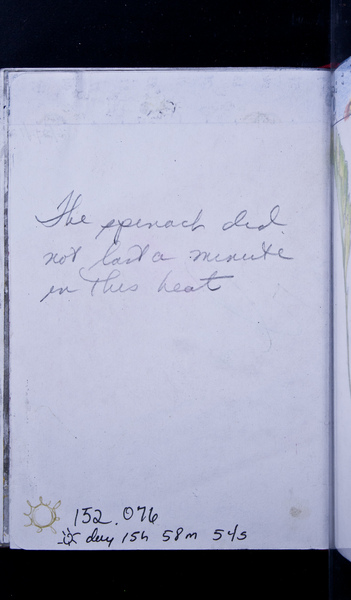 The spinach did
not last a minute
in this heat
152.076
day 15h 58m 54s